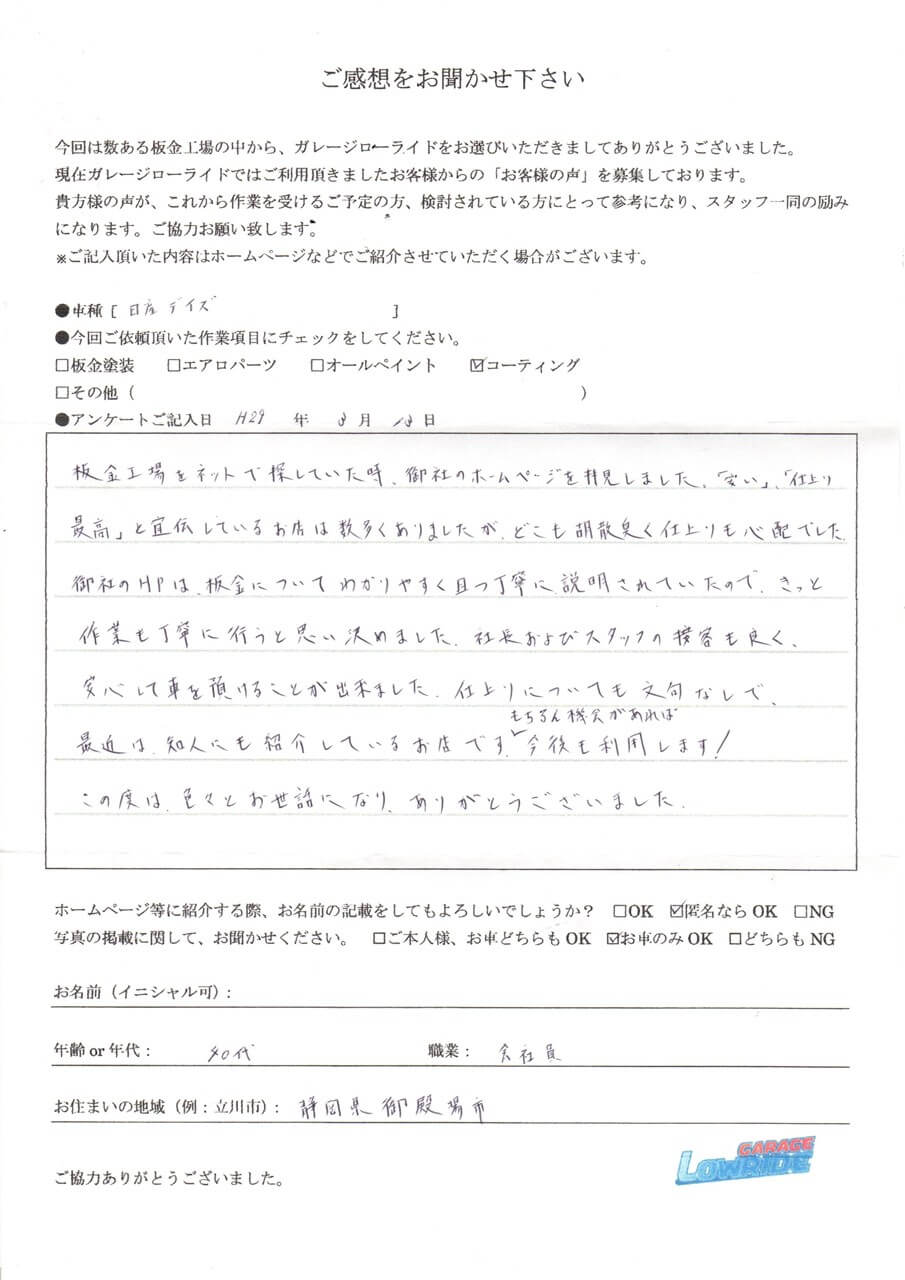 ご感想をお聞かせ下さい
今回は数ある板金工場の中から、ガレージローライドをお選びいただきましてありがとうございました。
現在ガレージローライドではご利用頂きましたお客様からの「お客様の声」を募集しております。
貴方様の声が、これから作業を受けるご予定の方、検討されている方にとって参考になり、スタッフ一同の励み
になります。ご協力お願い致します。
※ご記入頂いた内容はホームページなどでご紹介させていただく場合がございます。
●車種 [ 日産 デイズ ]
●今回ご依頼頂いた作業項目にチェックをしてください。
□板金塗装 □エアロパーツ □オールペイント ☑コーティング
□その他 ( )
●アンケートご記入日 H29 年 8 月 18 日
板金工場をネットで探していた時、御社のホームページを拝見しました。「安い」、「仕上り
最高」と宣伝しているお店は数多くありましたが、どこも胡散臭く仕上りも心配でした。
御社のHPは、板金についてわかりやすく且つ丁寧に説明されていたので、きっと
作業も丁寧に行うと思い決めました。社長およびスタッフの接客も良く、
安心して車を預けることが出来ました。仕上りについても文句なしで、
もちろん機会があれば
最近は、知人にも紹介しているお店です。今後も利用します!
この度は、色々とお世話になり、ありがとうございました。
ホームページ等に紹介する際、お名前の記載をしてもよろしいでしょうか? □OK ☑匿名なら OK □NG
写真の掲載に関して、お聞かせください。 □ご本人様、お車どちらも OK ☑お車のみ OK □どちらも NG
お名前 (イニシャル可) :
年齢 or 年代: 40代 職業: 会社員
お住まいの地域 (例:立川市) : 静岡県御殿場市
GARAGE
LOWRIDE
ご協力ありがとうございました。